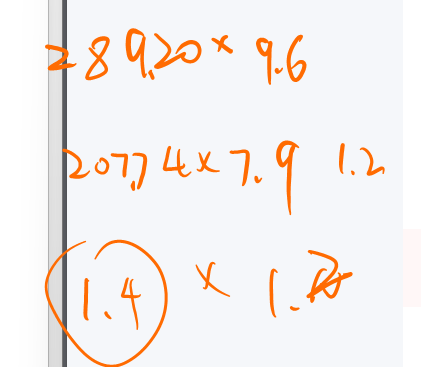 289.20 × 9.6
207.74 × 7.9 1.2
1.4 × 1.